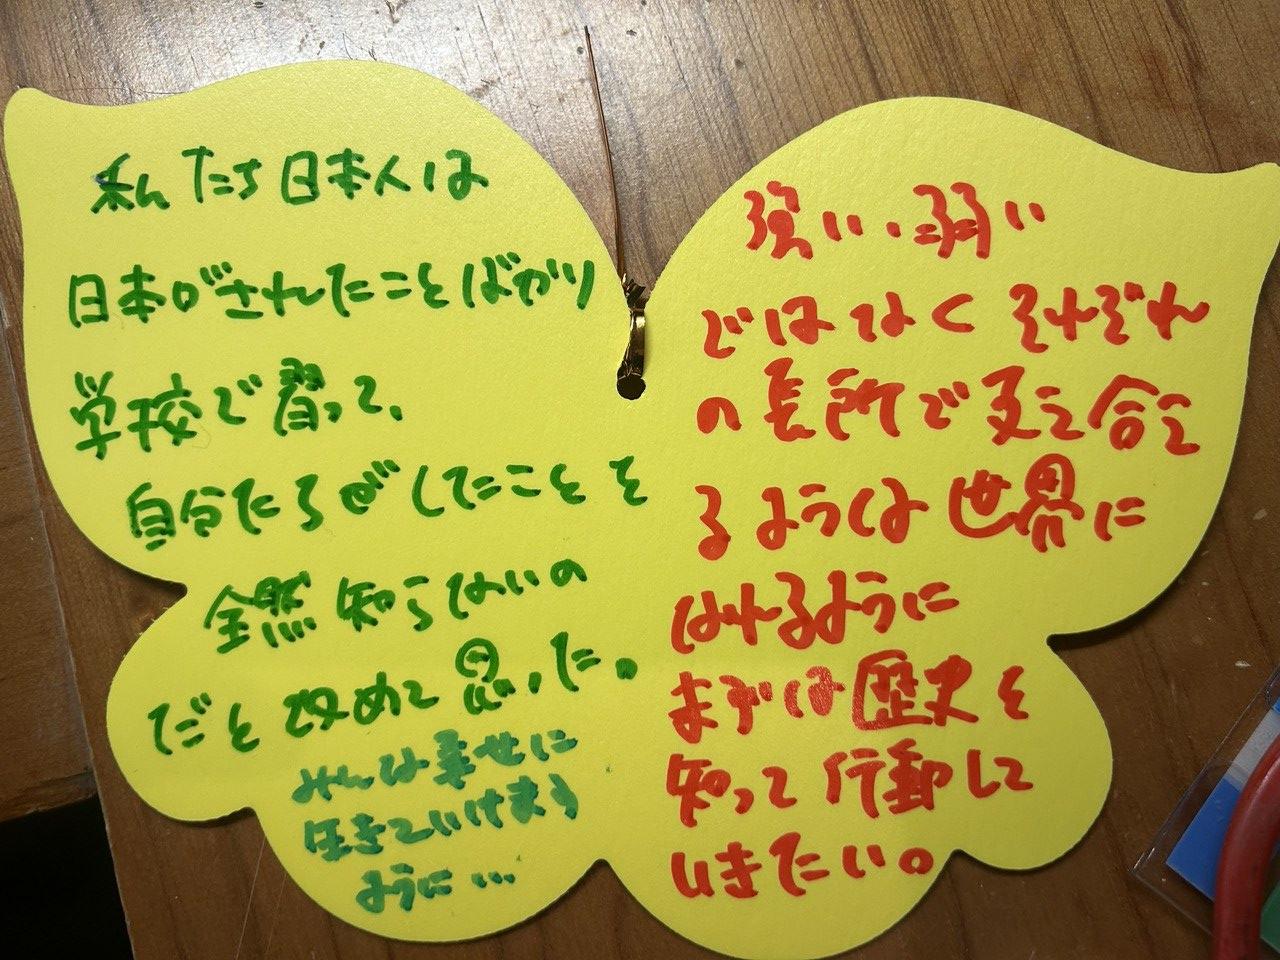 私たち日本人は
日本がされたことばかり
学校で習って、
自分たちがしたことを
全然知らないの
だと改めて思った。
みんな幸せに
生きていけますように…
強い・弱い
ではなく それぞれ
の長所で支え合え
るような世界に
なれるように
まずは歴史を
知って行動して
いきたい。